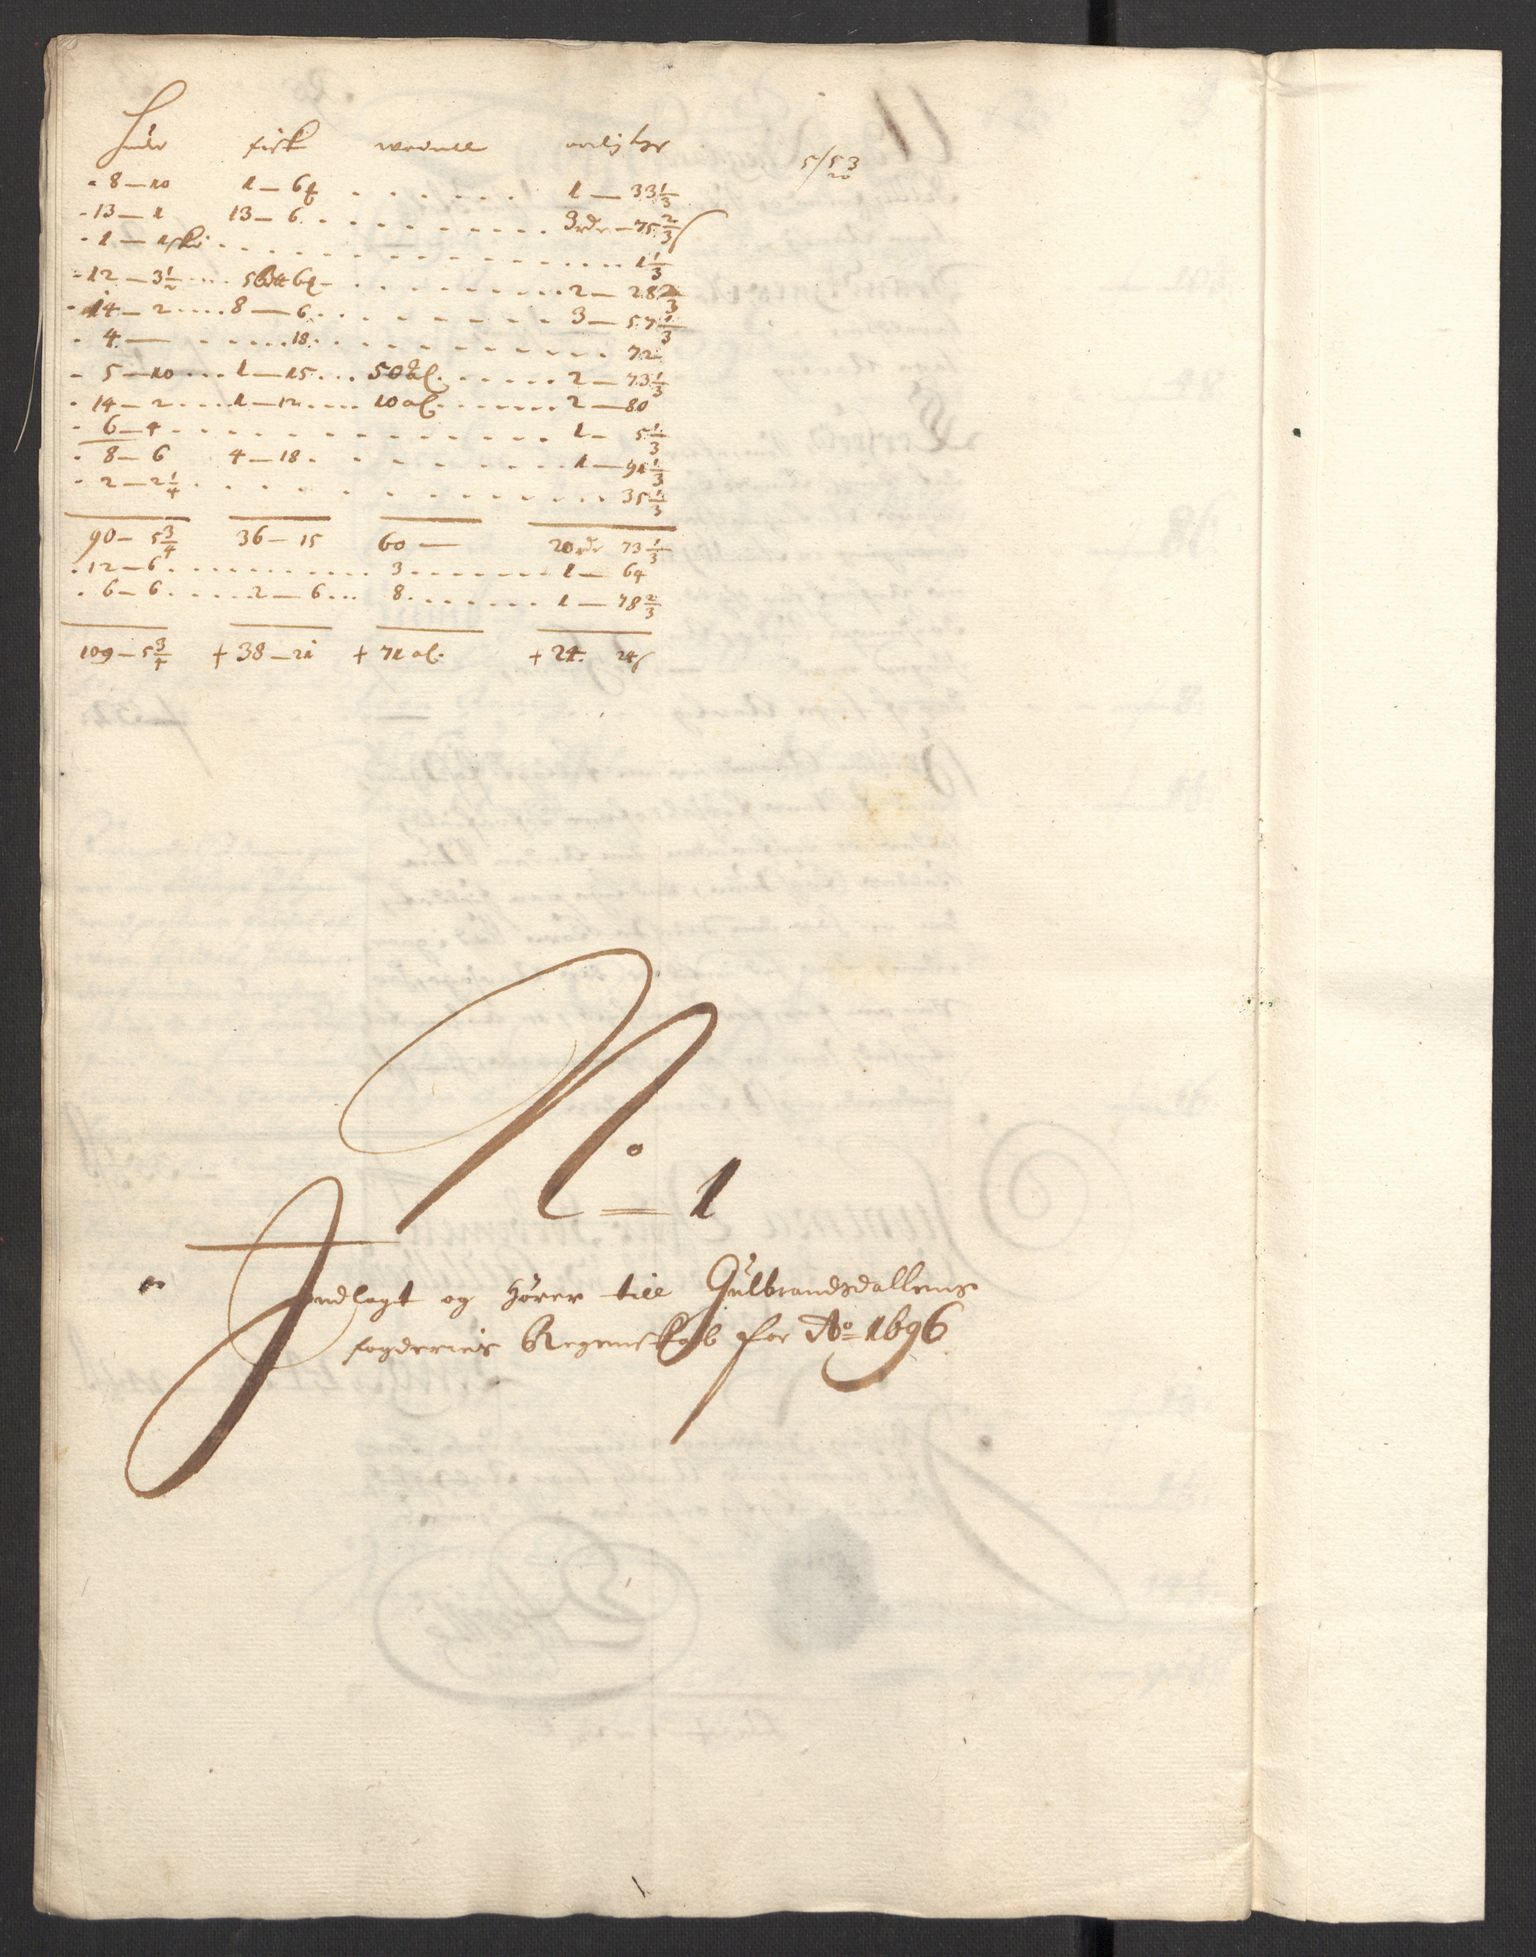 Huder fisk wadmel aarlig
- 8 — 10 1 — 6 . . . . . . 1 — 33 1/3
- 13 — 1 13 — 6 . . . . . . 3 rdr — 75 2/3
- 1 — 1 . . . . . . 1 1/3
- 12 — 3 1/2 . . . 5 6 . . . . . . 2 — 28 2/3
- 14 — 2 . . . . 8 — 6 . . . . . . 3 — 57 1/3
- 4 — . . . . 18 . . . . . . 72
- 5 — 10 . . . 1 — 15 . . . 50 al. . . . . . 2 — 73 1/3
- 14 — 2 . . . . 1 — 12 . . . . 10 al. . . . . . 2 — 80
- 6 — 4 . . . . . . 1 — 5 1/3
- 8 — 6 4 — 18 . . . . . . 1 — 91 1/3
- 2 — 2 1/4 . . . . . . 35 1/3
90 — 5 3/4 36 — 15 60 — 20 rdr 73 1/3
. 12 — 6 . . . . . . 3 . . . . . . 1 — 64
. 6 — 6 . . . . 2 — 6 . . . 8 . . . . . . 1 — 78 2/3
109 — 5 3/4 + 38 — 21 + 71 al. + 24. 24
No 1
Indlagt og hører till Gulbrandsdallens
fogderies Regenskab for Ao 1696